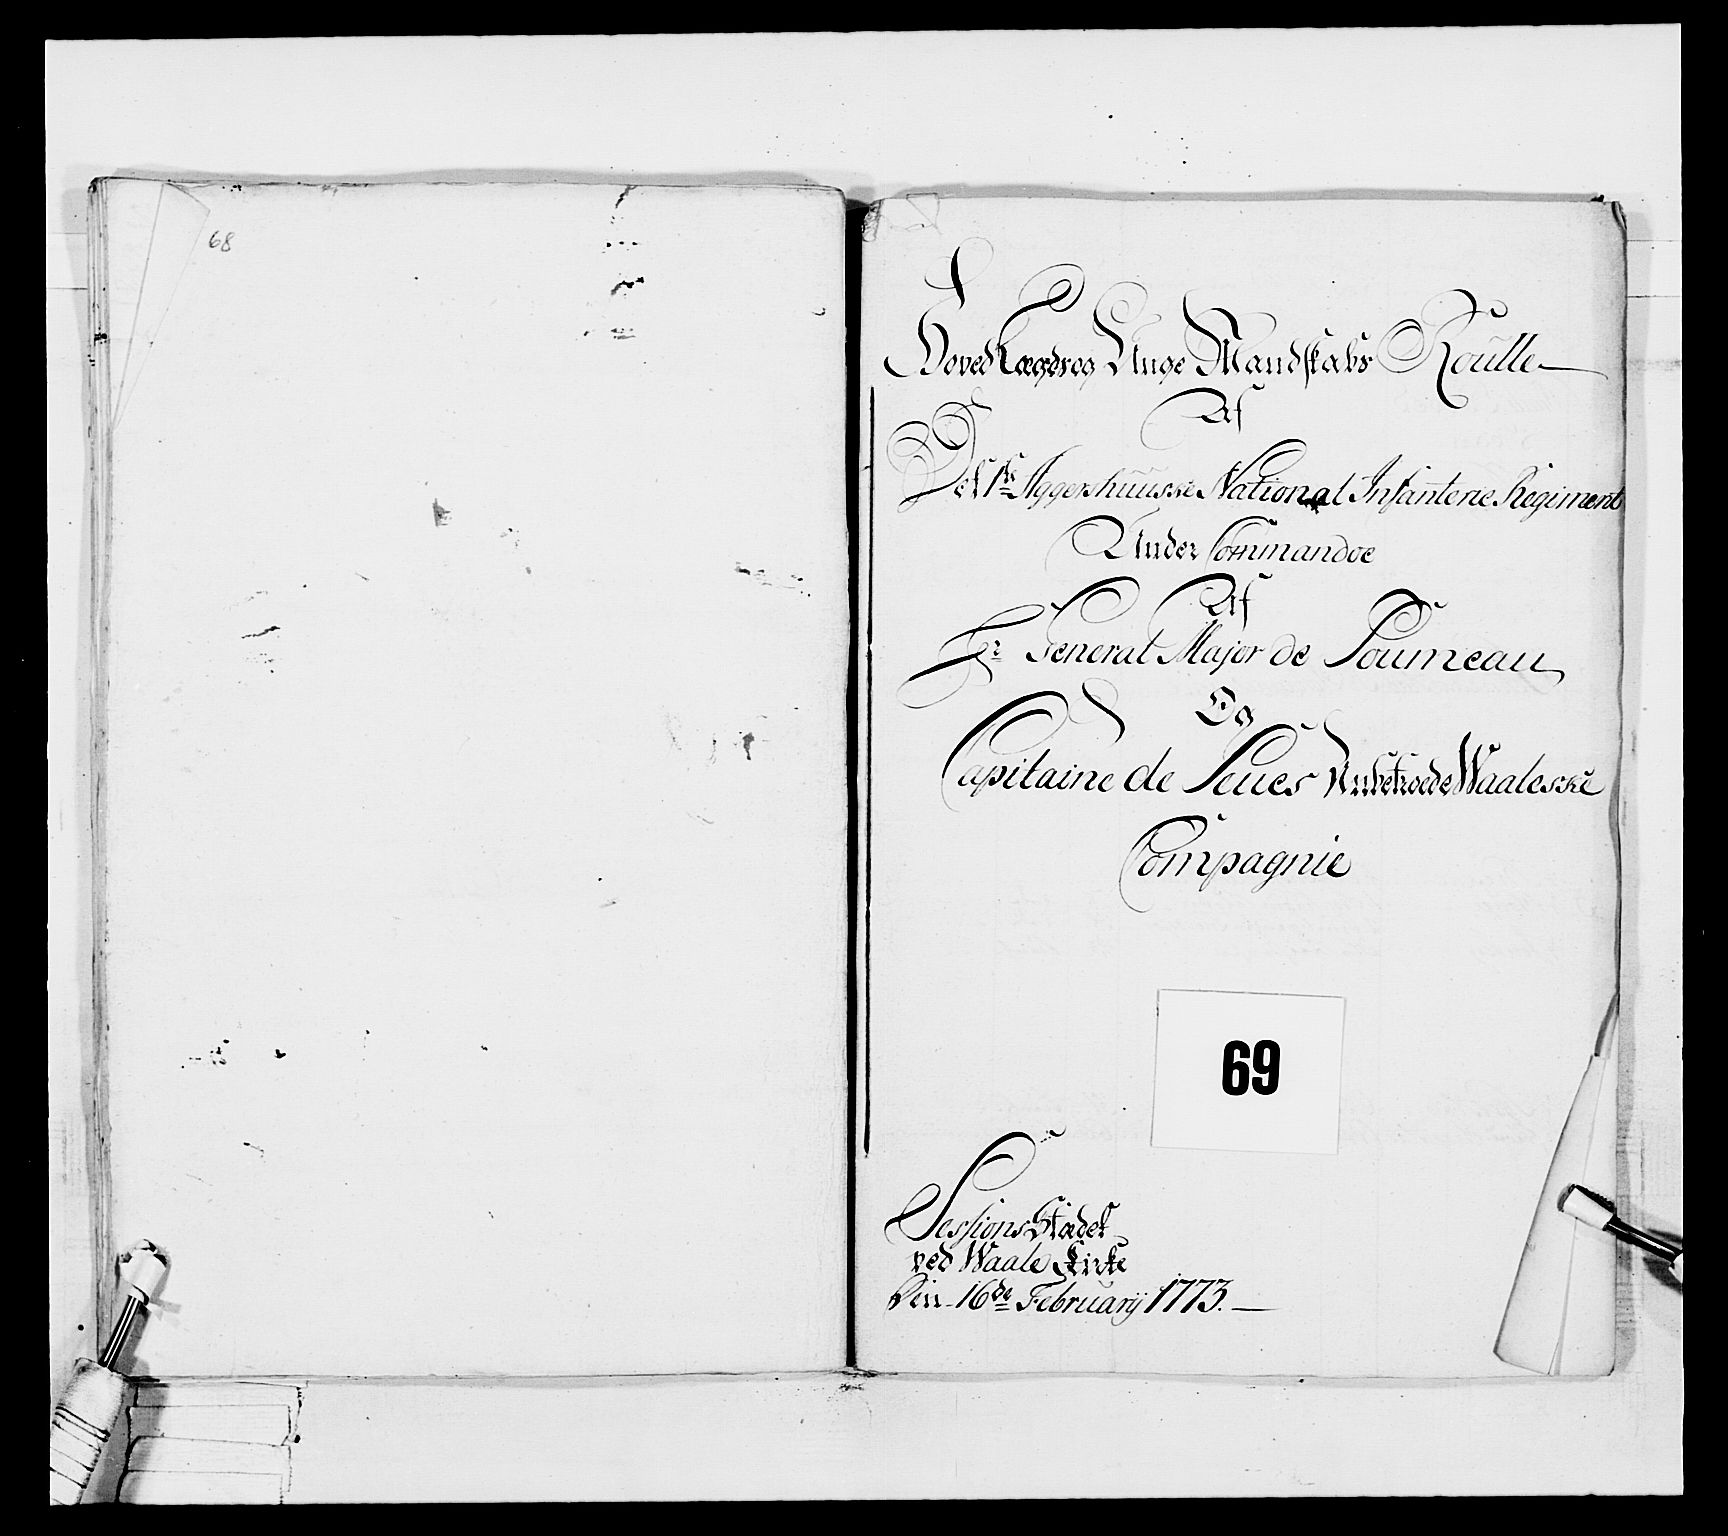 68
Hoved Lægds og Unge Mandskabs Roulle
Af
Det 1ste Aggershuuske National Infanterie Regiment
Under Commandoe
Af
Hr General Major de
Og
Capitaine de Seues Anbetroede Waaleske
Compagnie
69
Sessions Stædet
ved Waale Kirke
Den 16de Februarij 1773.